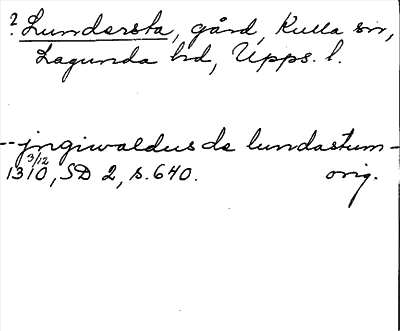 ? Lundersta, gård, Kulla sn,
Lagunda hd, Upps. l.
-- jngiwaldus de lundastum -
1310 3/12, SD 2, s. 640. orig.